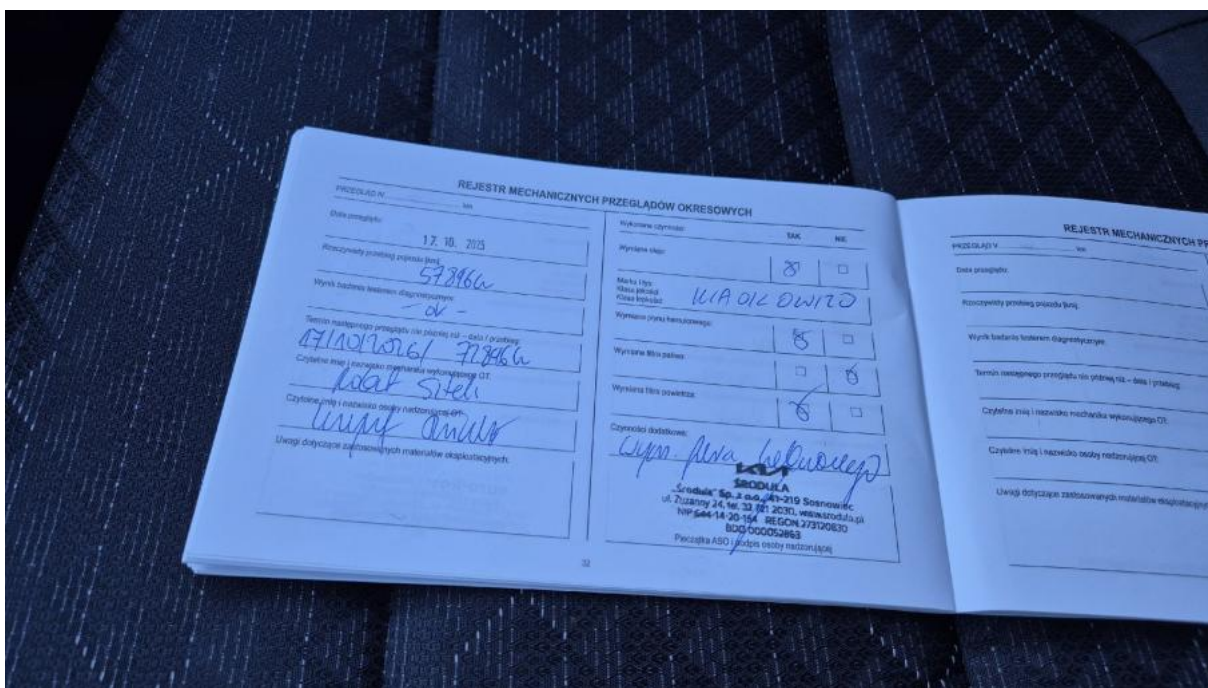 REJESTR MECHANICZNYCH PRZEGLĄDÓW OKRESOWYCH
PRZEGLĄD IV km
Data przeglądu:
17. 10. 2025
Rzeczywisty przebieg pojazdu [km]:
57896
Wynik badania testerem diagnostycznym:
- OK -
Termin następnego przeglądu nie później niż – data i przebieg:
17/10/2026/ 72896
Czytelne imię i nazwisko mechanika wykonującego OT:
Czytelne imię i nazwisko osoby nadzorującej OT:
Uwagi dotyczące zastosowanych materiałów eksploatacyjnych:
Wykonane czynności: TAK NIE
Wymiana oleju:
Marka i typ:
Klasa jakości:
Klasa lepkości:
Wymiana płynu hamulcowego:
Wymiana filtra paliwa:
Wymiana filtra powietrza:
Czynności dodatkowe:
wym.
KIA
ŚRODULA
„Środula" Sp. z o.o., 41-219 Sosnowiec
ul. Zuzanny 24, tel. 32 721 2030, www.srodula.pl
NIP 644-14-20-154 REGON 273120830
BDO 000052863
Pieczątka ASO i podpis osoby nadzorującej
32
REJESTR MECHANICZNYCH PR
PRZEGLĄD V km
Data przeglądu:
Rzeczywisty przebieg pojazdu [km]:
Wynik badania testerem diagnostycznym:
Termin następnego przeglądu nie później niż – data i przebieg:
Czytelne imię i nazwisko mechanika wykonującego OT:
Czytelne imię i nazwisko osoby nadzorującej OT:
Uwagi dotyczące zastosowanych materiałów eksploatacyjnych